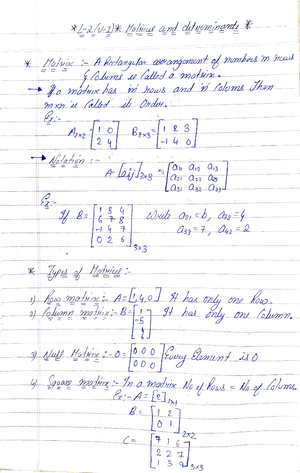 * L-2 (U-I) * Matrices and determinants *
* Matrix :- A Rectangular arrangement of numbers m rows
& Columns is Called a matrix.
→ If a matrix has 'm' rows and 'n' Colums then
mxn is Called its Order.
Ex:-
A2×2 = [1 0
2 4] B2×3 = [1 2 3
-1 4 0]
→ Notation :-
A = [aij]3×3 = [a11 a12 a13
a21 a22 a23
a31 a32 a33]
Ex:-
If B = [1 3 4
6 7 8
-1 4 7
0 2 6]3×3 Write a21 = 6, a13 = 4
a33 = 7, a42 = 2
* Types of Matrices :-
1) Row matrix :- A = [1, 4, 0] It has only one Row.
2) Column matrix :- B = [1
-5
4] It has only one Column.
3) Null Matrix :- O = [0 0 0
0 0 0] Every Element is 0
4) Square matrix :- In a matrix No of Rows = No of Colums
Ex:- A = [2]1×1
B = [1 2
0 1]2×2
C = [7 1 6
2 2 7
1 3 9]3×3